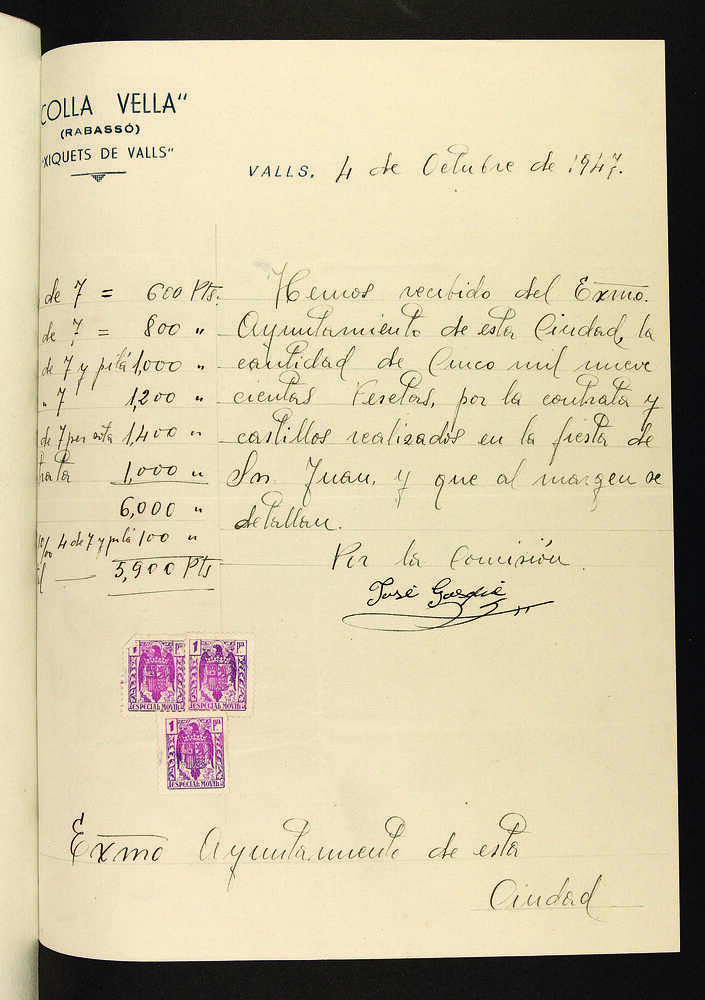 COLLA VELLA"
(RABASSÓ)
XIQUETS DE VALLS"
VALLS, 4 de Octubre de 1947.
de 7 = 600 Pts.
de 7 = 800 "
de 7 y pilá 1,000 "
" 7 1,200 "
de 7 per sota 1,400 "
1,000 "
6,000 "
4 de 7 y pilá 100 "
5,900 Pts
Hemos recibido del Exmo.
Ayuntamiento de esta Ciudad, la
cantidad de Cinco mil nueve
cientas Pesetas, por la contrata y
castillos realizados en la fiesta de
Sn. Juan, y que al margen se
detallan.
Por la Comisión.
José
1 Pta
ESPECIAL MOVIL
1 Pta
ESPECIAL MOVIL
1 Pta
ESPECIAL MOVIL
Exmo Ayuntamiento de esta
Ciudad